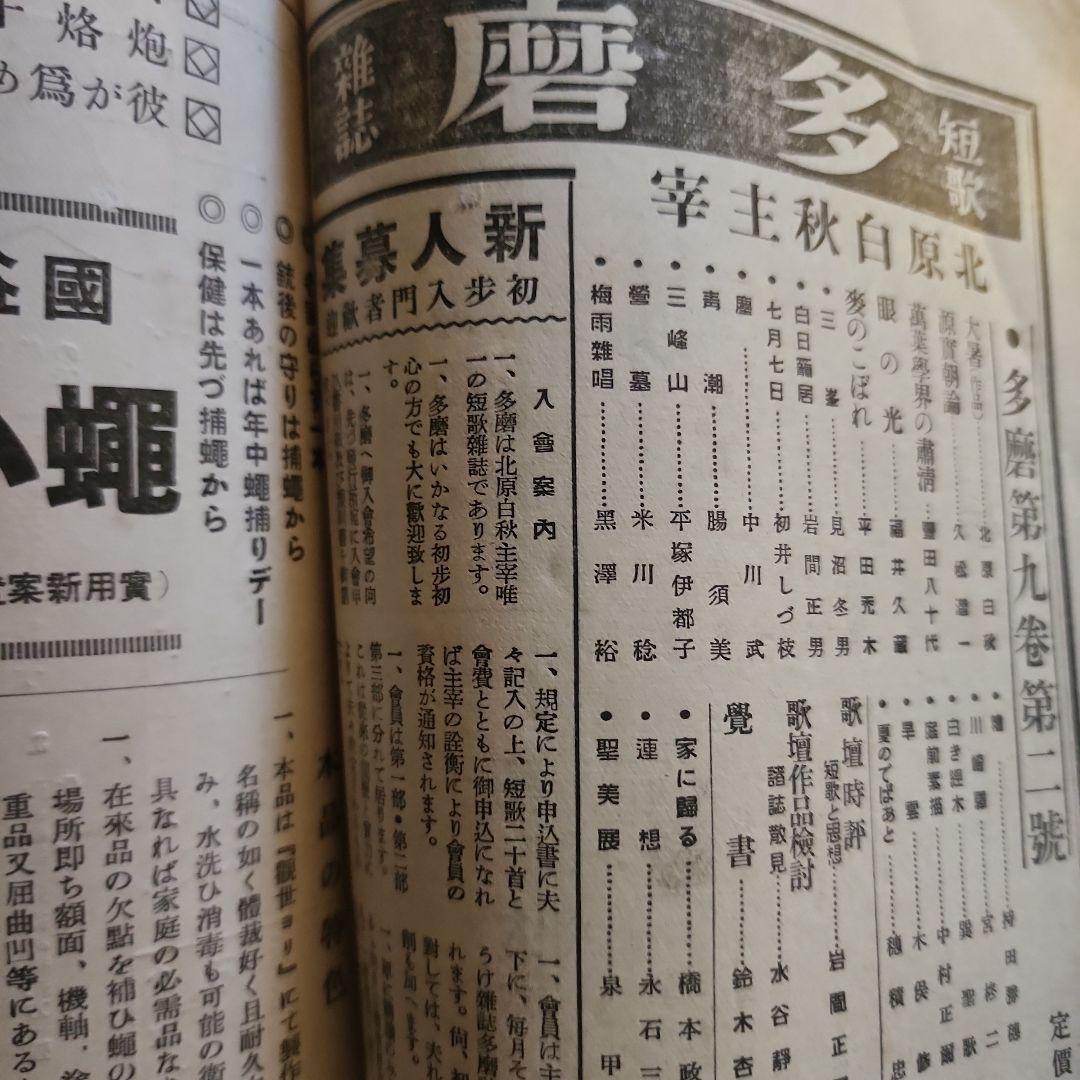 短歌
多磨
雜誌
北原白秋主宰
●多磨第九卷第二號
大暑(作品)……北原白秋
源實朝論……久松潛一
萬葉學界の肅清……豐田八十代
眼の光……福井久藏
麥のこぼれ……平田禿木
●三峯……見沼冬男
●白日籠居……岩間正男
●七月七日……初井しづ枝
●塵……中川武
●青潮……腸須美
●三峰山……平塚伊都子
●營墓……米川稔
●梅雨雜唱……黑澤裕
●川崎驛……宮柊二
●白き埋木……巽聖歌
●庭前素描……中村正爾
●早雲……木俣修
●夏のてばあと……穗積忠
歌壇時評
短歌と思想……岩間正
歌壇作品檢討
諸誌散見……水谷靜
覺書……鈴木杏
●家に歸る……橋本政
●蓮想……永石三
●聖美展……泉甲
定價
新人募集
初步入門者歡迎
入會案內
一、多磨は北原白秋主宰唯
一の短歌雜誌であります。
一、多磨はいかなる初步初
心の方でも大に歡迎致しま
す。
一、多磨へ御入會希望の向
一、規定により申込書に夫
々記入の上、短歌二十首と
會費とともに御申込になれ
ば主宰の詮衡により會員の
資格が通知されます。
一、會員は第一部●第二部
第三部に分れて居ります。
一、會員は主
下に、每月そ
うけ雜誌多磨
れます。尙、初
對しては、夫れ
削も加へます。
烙炮
め爲が彼
國
蠅
◎銃後の守りは捕蠅から
◎一本あれば年中蠅捕りデー
◎保健は先づ捕蠅から
實用新案
本品の特色
一、本品は『觀世ヨリ』にて製作
名稱の如く體裁好く且耐久
み、水洗ひ消毒も可能の衞
具なれば家庭の必需品な
一、在來品の欠點を補ひ蠅の
場所卽ち額面、機軸、
重品又屈曲凹等にある